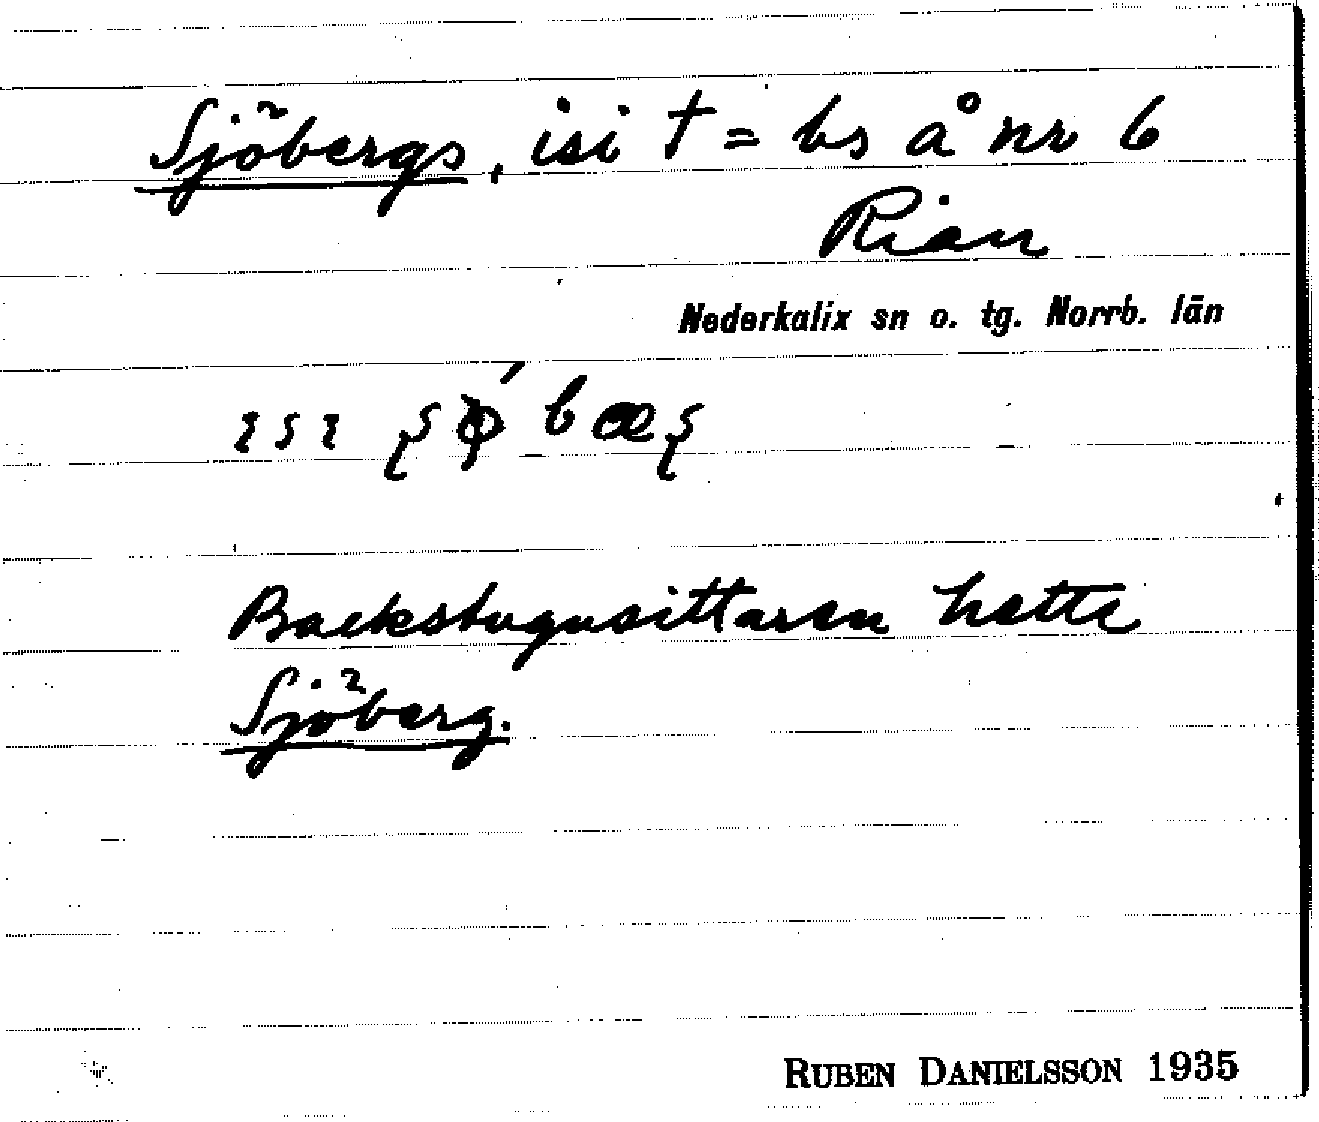 Sjöbergs, isi † = bs å nr 6
Rian
Nederkalix sn o. tg. Norrb. län
Backstugusittaren hette
Sjöberg.
RUBEN DANIELSSON 1935